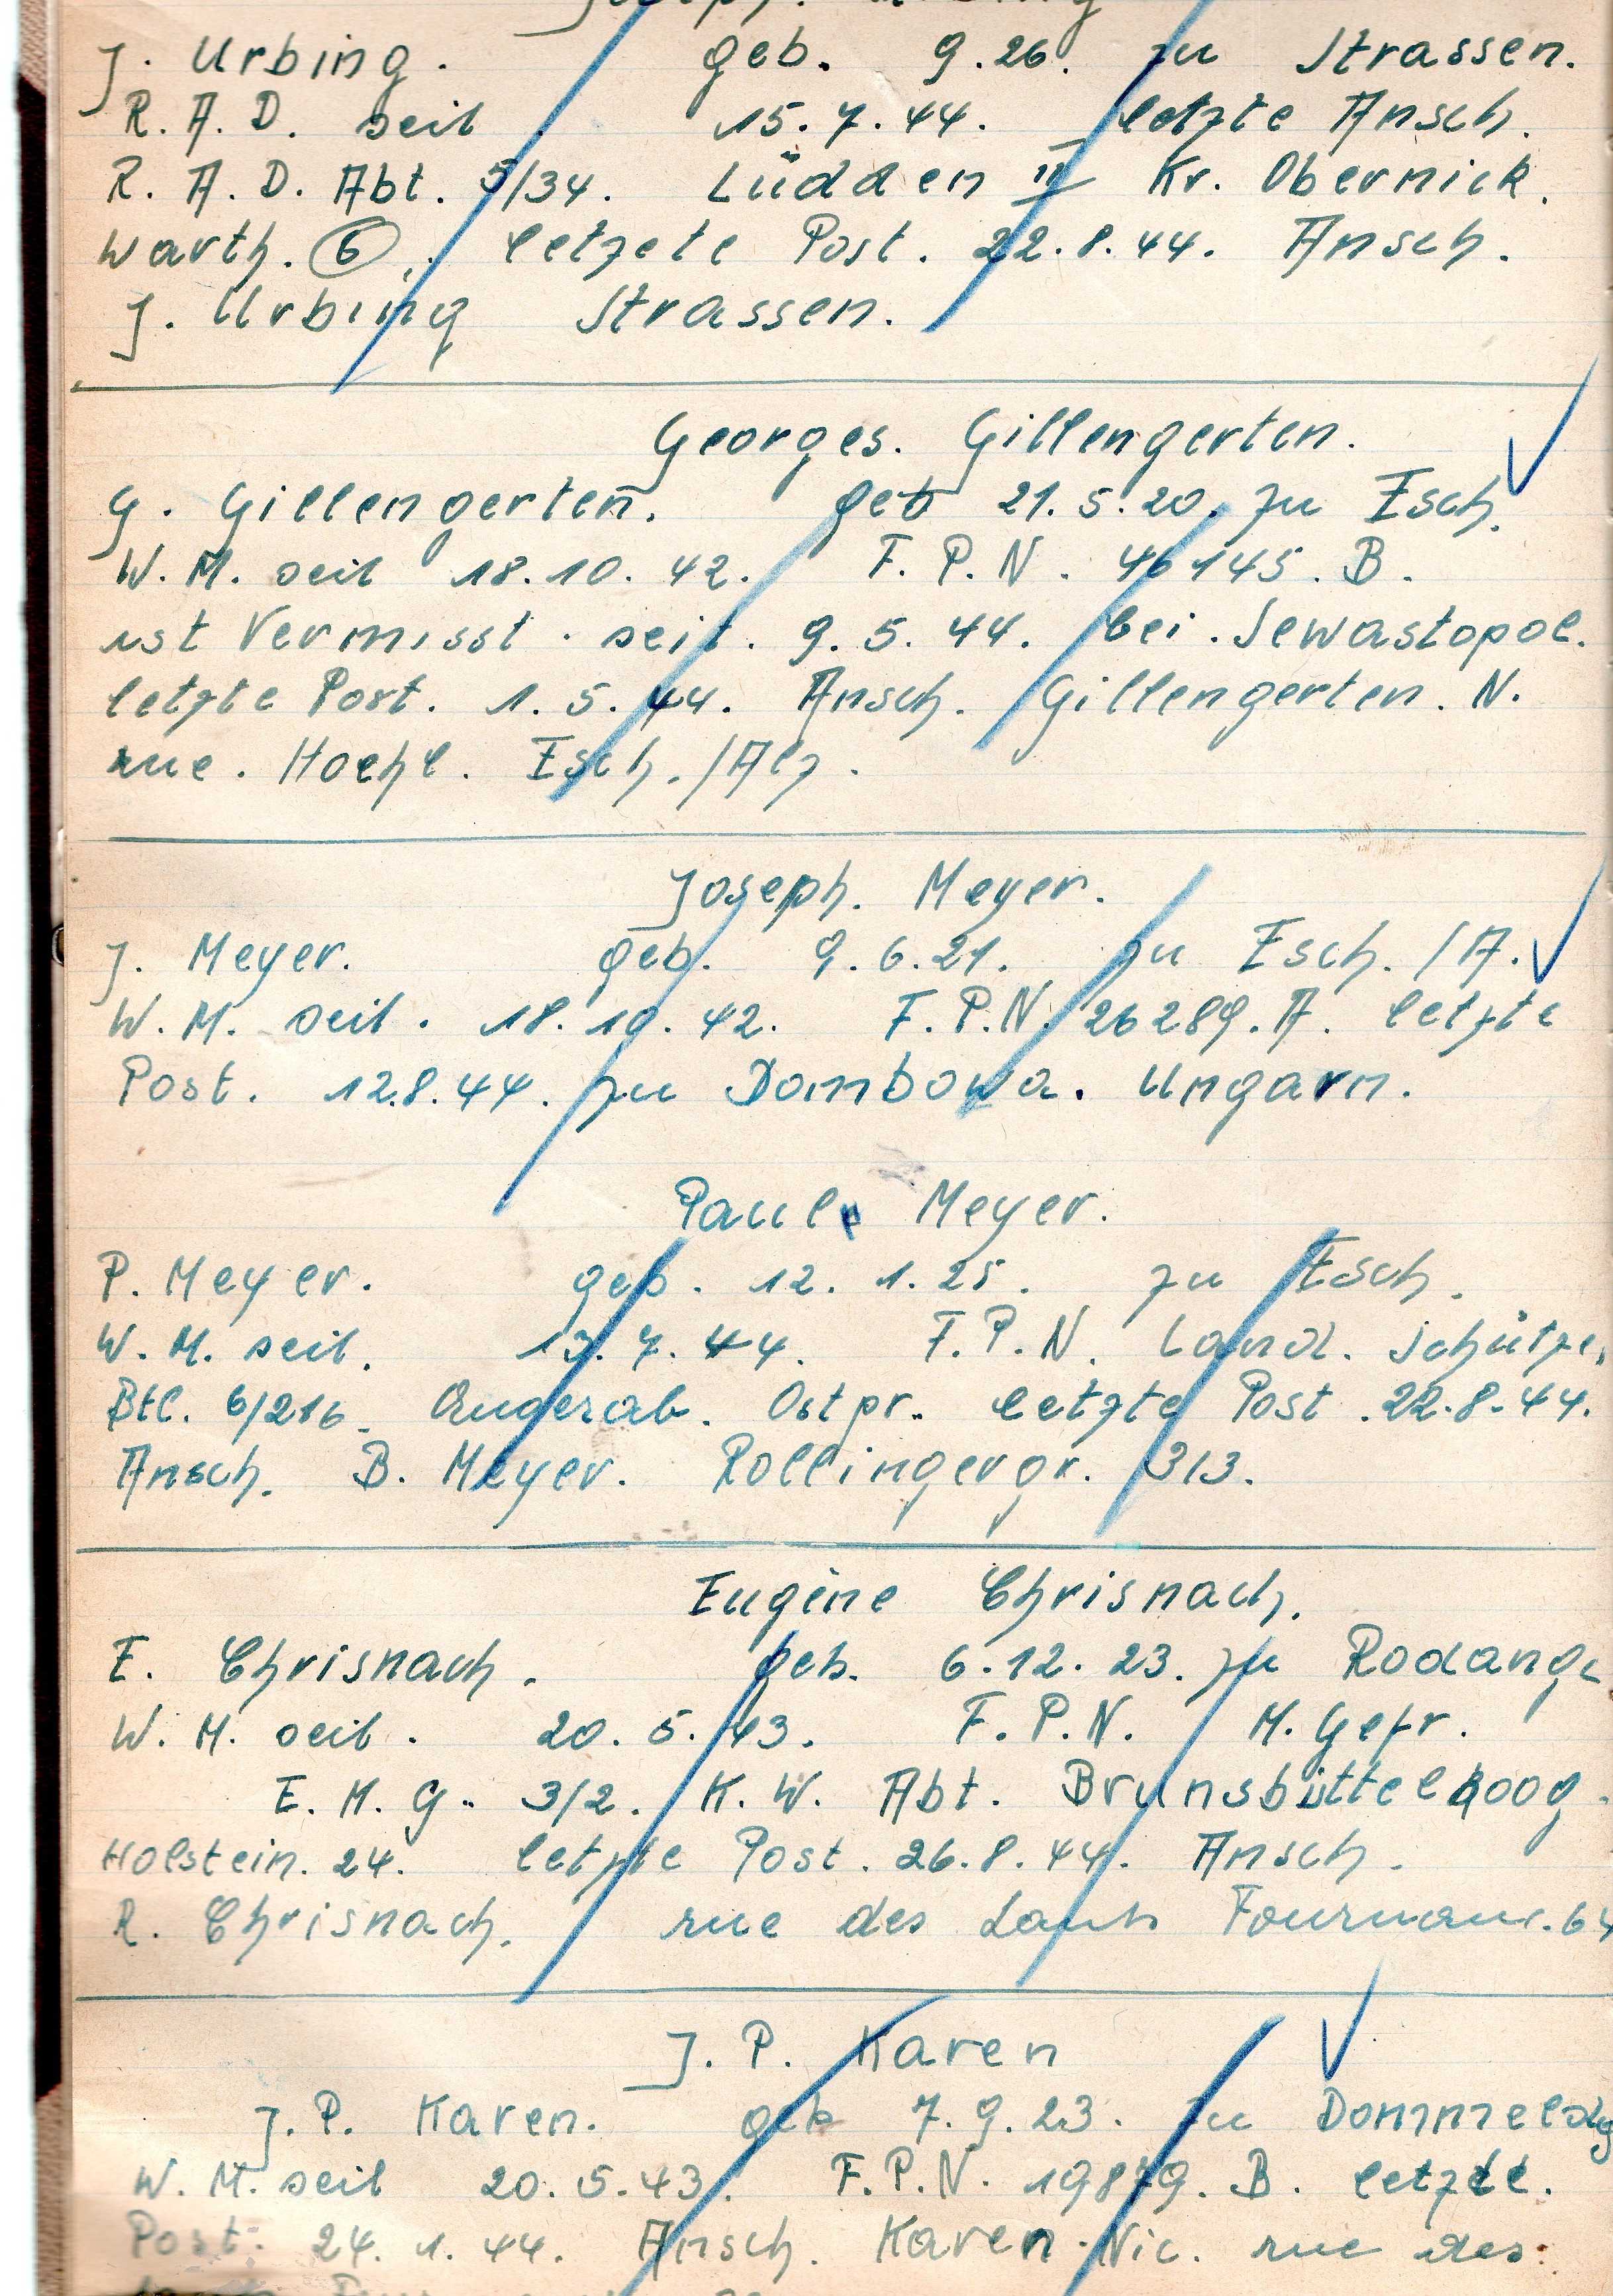 J. Urbing. geb. 9.26. zu Strassen.
R. A. D. seit . 15. 7. 44. letzte Ansch.
R. A. D. Abt. 5/34. Lüdden II Kr. Obernick.
Warth. (6). letzete Post. 22.8.44. Ansch.
J. Urbing Strassen.
Georges. Gillengerten.
G. Gillengerten. geb 21. 5. 20. zu Esch.
W. M. seit 18. 10. 42. F. P. N. 46145. B.
ist Vermisst. seit. 9. 5. 44. bei. Sewastopol.
letzte Post. 1. 5. 44. Ansch. Gillengerten. N.
rue. Hoehl. Esch. /Alz.
Joseph. Meyer.
J. Meyer. geb. 9. 6. 21. zu Esch. /A.
W. M. seit. 18. 10. 42. F. P. N. 26289. A. letzte
Post. 12.8.44. zu Dombowa. Ungarn.
Paul Meyer.
P. Meyer. geb. 12. 1. 25. zu Esch.
W. M. seit. 13. 7. 44. F. P. N. Land. schütze.
Btl. 6/216. Angerab. Ostpr.. letzte Post. 22.8.44.
Ansch. B. Meyer. Rollingergr. 313.
Eugène Chrisnach.
E. Chrisnach. geb. 6. 12. 23. zu Rodange
W. M. seit. 20. 5. 43. F. P. N. M. Gefr.
E. M. G.. 3/2. K. W. Abt. Brunsbüttelkoog.
Holstein. 24. letzte Post. 26. 8. 44. Ansch.
R. Chrisnach. rue des 64
J. P. Karen
J. P. Karen. geb 7. 9. 23. zu Dommeldg
W. M. seit 20. 5. 43. F. P. N. 19879. B. letzte.
Post. 24. 1. 44. Ansch. Karen. Nic. rue des.